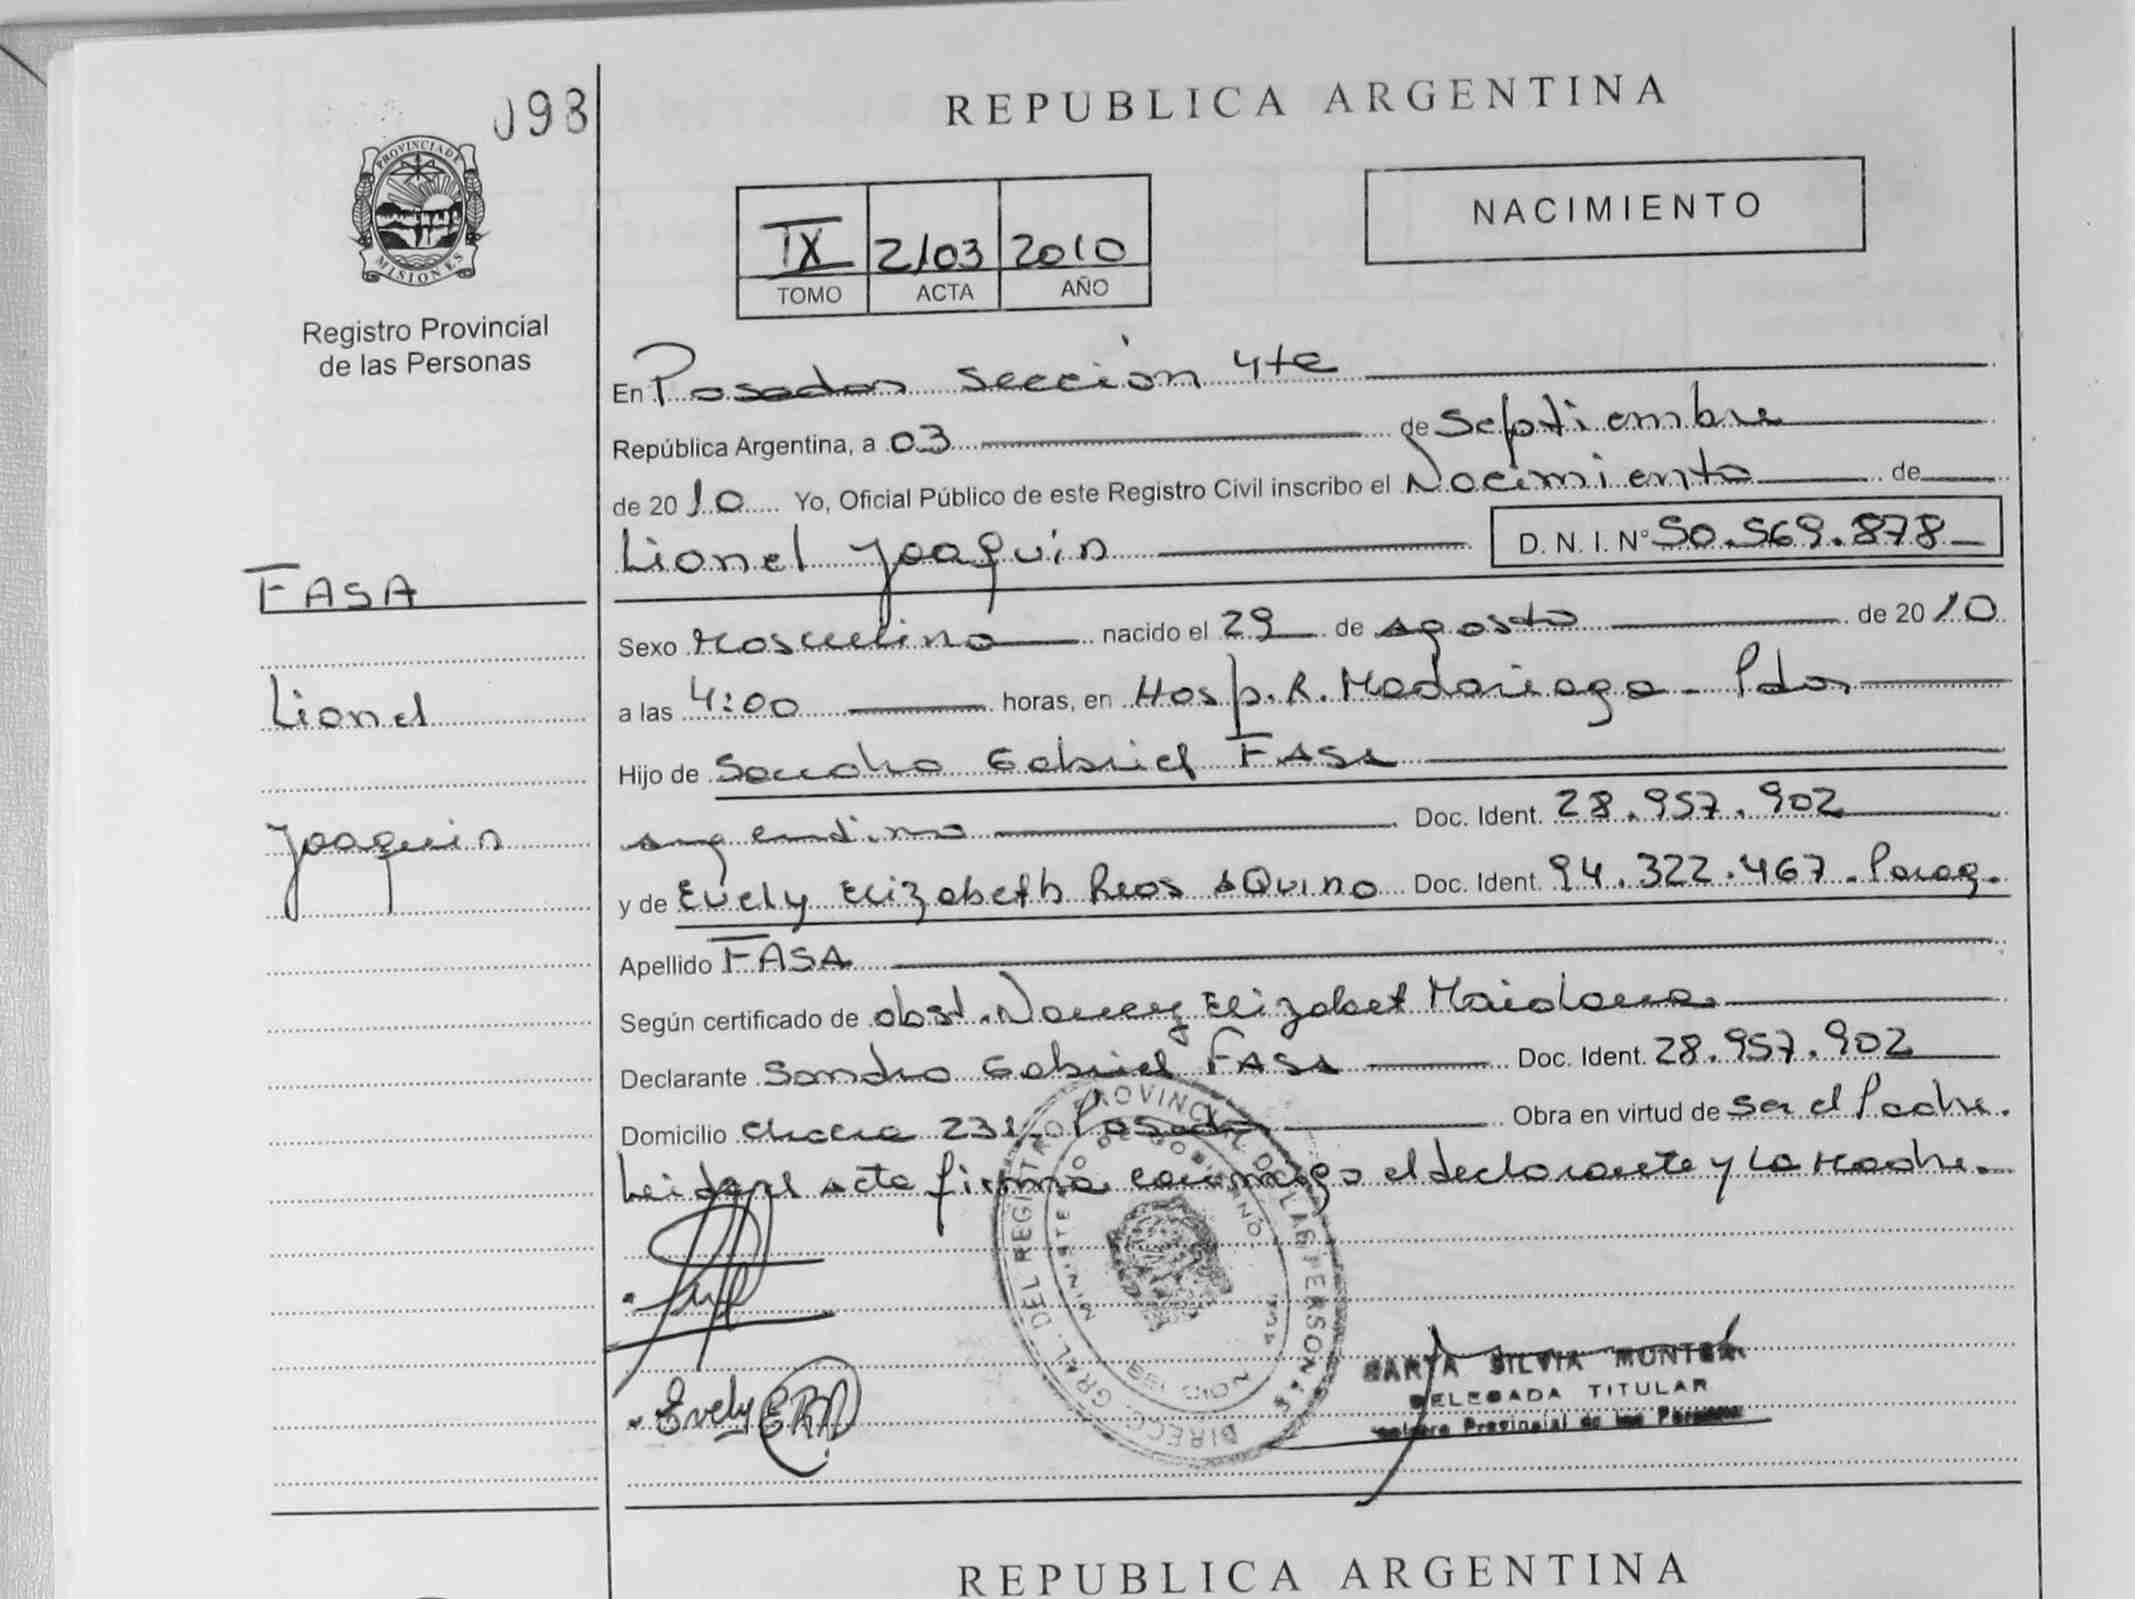 098
PROVINCIA DE
MISIONES
Registro Provincial
de las Personas
REPUBLICA ARGENTINA
NACIMIENTO
IX 2103 2010
TOMO ACTA AÑO
En Posadas sección 4ta
República Argentina, a 03 de Septiembre
de 2010 Yo, Oficial Público de este Registro Civil inscribo el Nacimiento de
Lionel Joaquin D. N. I. N° 50.569.878
FASA
Lionel
Joaquin
Sexo Masculino nacido el 29 de agosto de 2010
a las 4:00 horas, en Hosp. R. Madariaga - Pdas
Hijo de Sandro Gabriel FASA
argentino Doc. Ident. 28.957.902
y de Evely Elizabeth Rios AQuino Doc. Ident. 94.322.467 - Parag.
Apellido FASA
Según certificado de obst. Nancy Elizabet Maidana
Declarante Sandro Gabriel FASA Doc. Ident. 28.957.902
Domicilio chacra 231 - Posadas Obra en virtud de ser el Padre.
Leida el acta firma conmigo el declarante y La Madre.
DIRECC. GRAL. DEL REGISTRO PROVINCIAL DE LAS PERSONAS
MINISTERIO DE GOBIERNO
MISIONES
Evely ERA
SILVIA
DELEGADA TITULAR
Provincial de las Personas
REPUBLICA ARGENTINA